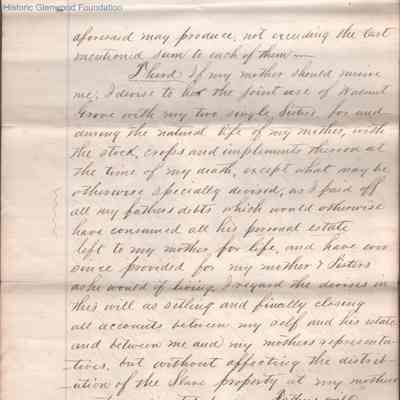 Historic Glenwood Foundation
aforesaid may produce, not exceeding the last
mentioned sum to each of them
Third If my mother should survive
me, I devise to her the joint use of Walnut
Grove with my two single Sisters, for and
during the natural life of my mother, with
the stock, crops and impliments thereon at
the time of my death, except what may be
otherwise specially devised, as I paid off
all my fathers debts which would otherwise
have consumed all his personal estate
left to my mother for life, and have ever
since provided for my mother & Sisters
as he would if living, I regard the devises in
this will as settling and finally closing
all accounts between my self and his estate
and between me and my mothers representa-
tives, but without affecting the distrib-
ution of the Slave property at my mothers